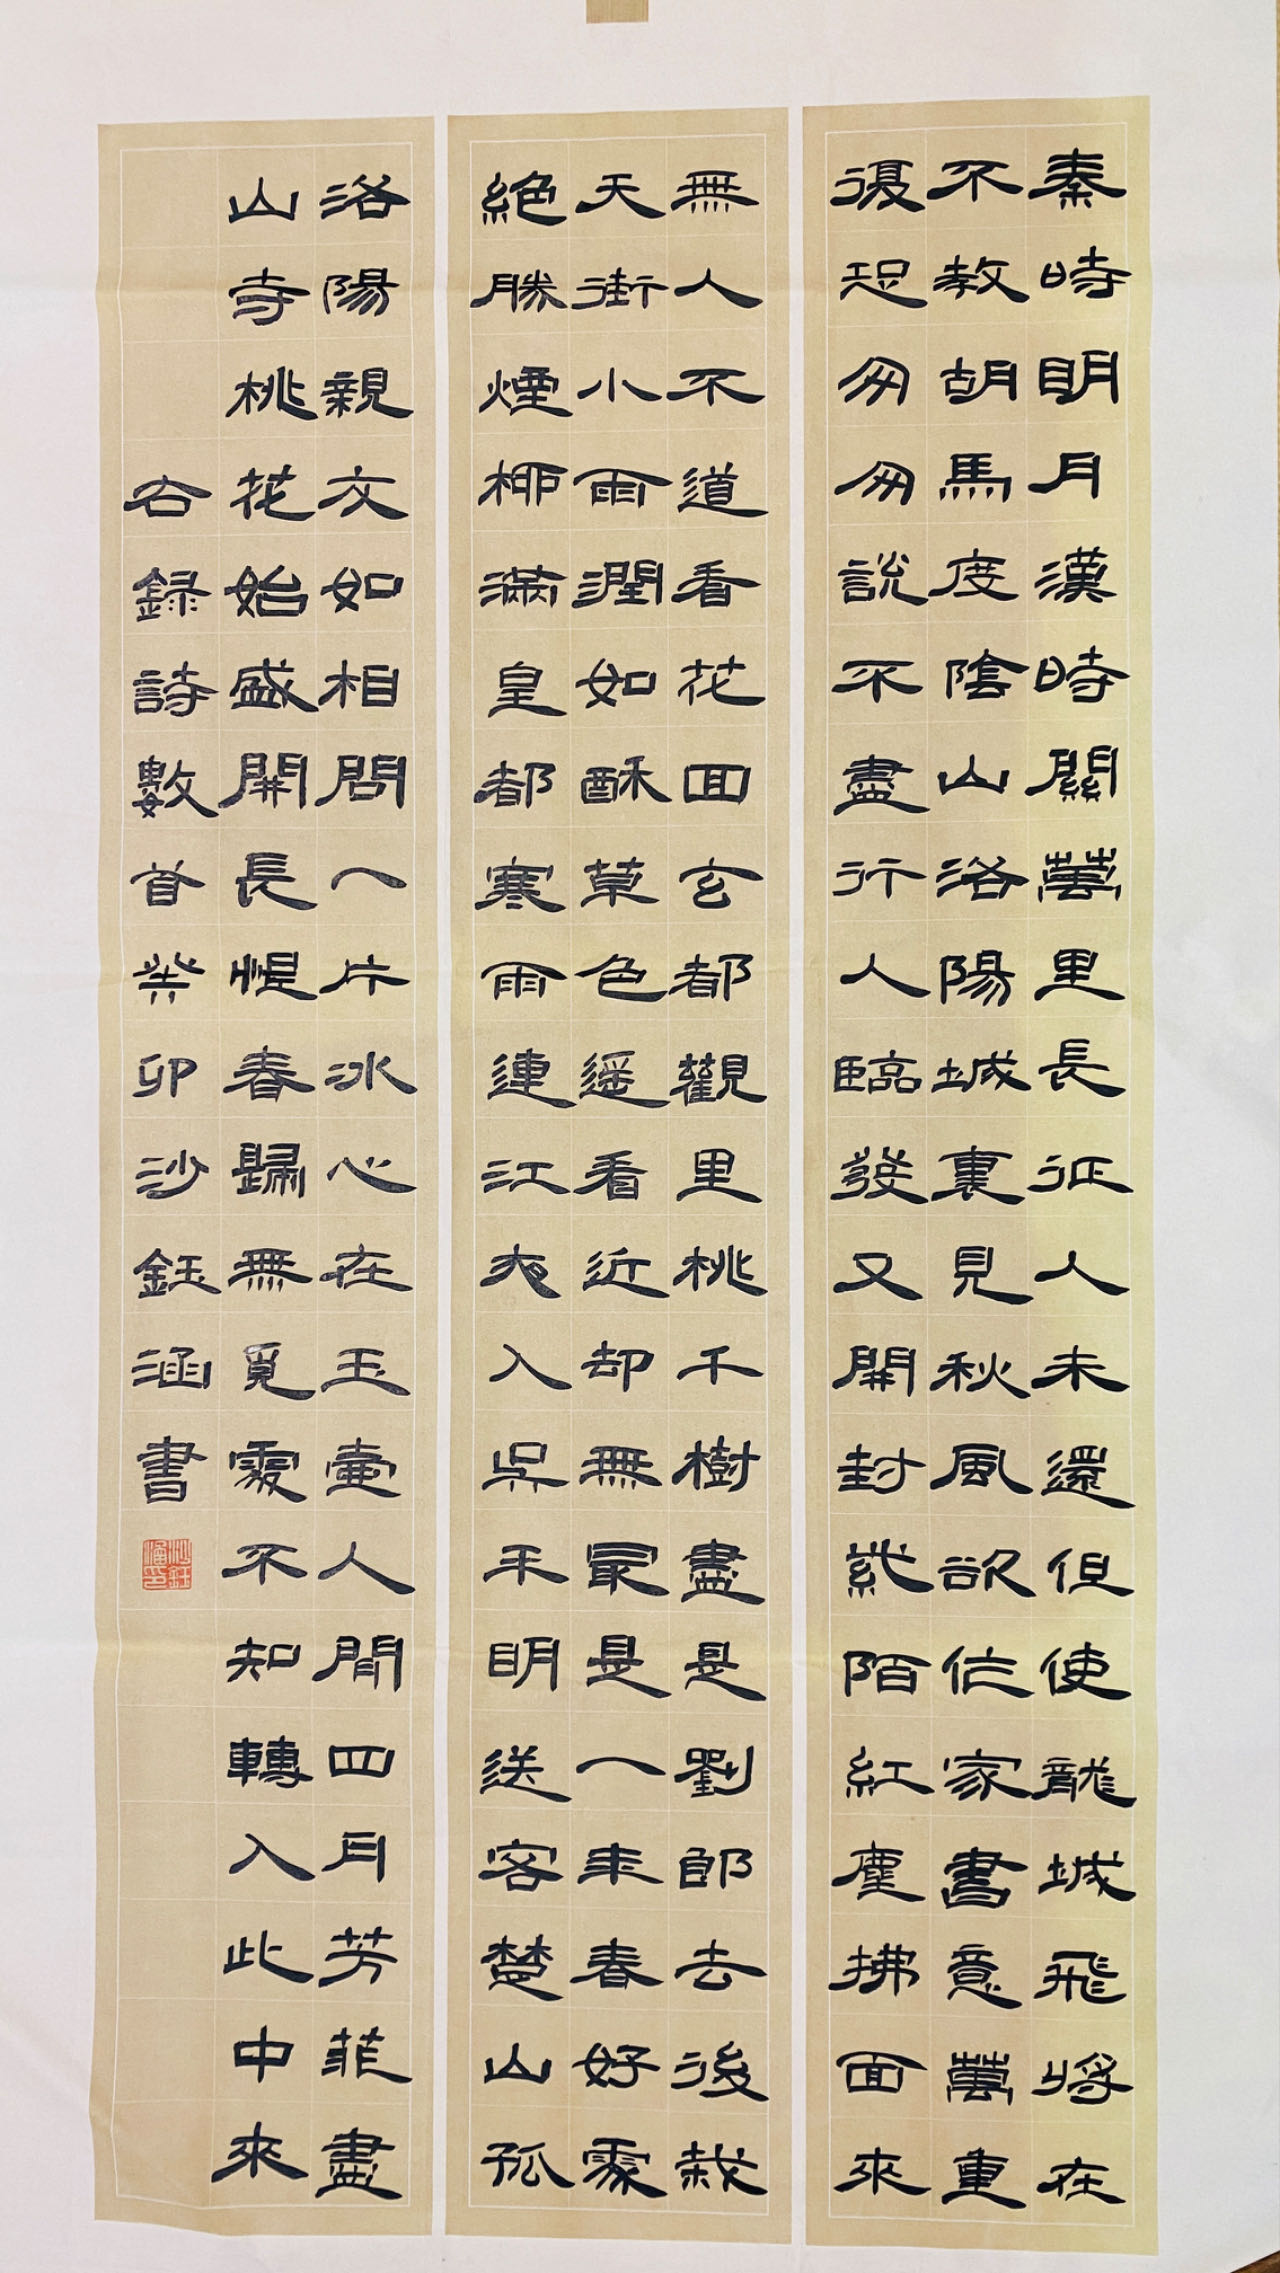 秦時明月漢時關萬里長征人未還但使龍城飛將在
不教胡馬度陰山洛陽城裏見秋風欲作家書意萬重
復恐匆匆說不盡行人臨發又開封紫陌紅塵拂面來
無人不道看花回玄都觀里桃千樹盡是劉郎去後栽
天街小雨潤如酥草色遥看近却無最是一年春好處
絶勝煙柳滿皇都寒雨連江夜入吳平明送客楚山孤
洛陽親友如相問一片冰心在玉壺人間四月芳菲盡
山寺桃花始盛開長恨春歸無覓處不知轉入此中來
右録詩數首癸卯沙鈺涵書
沙鈺涵印